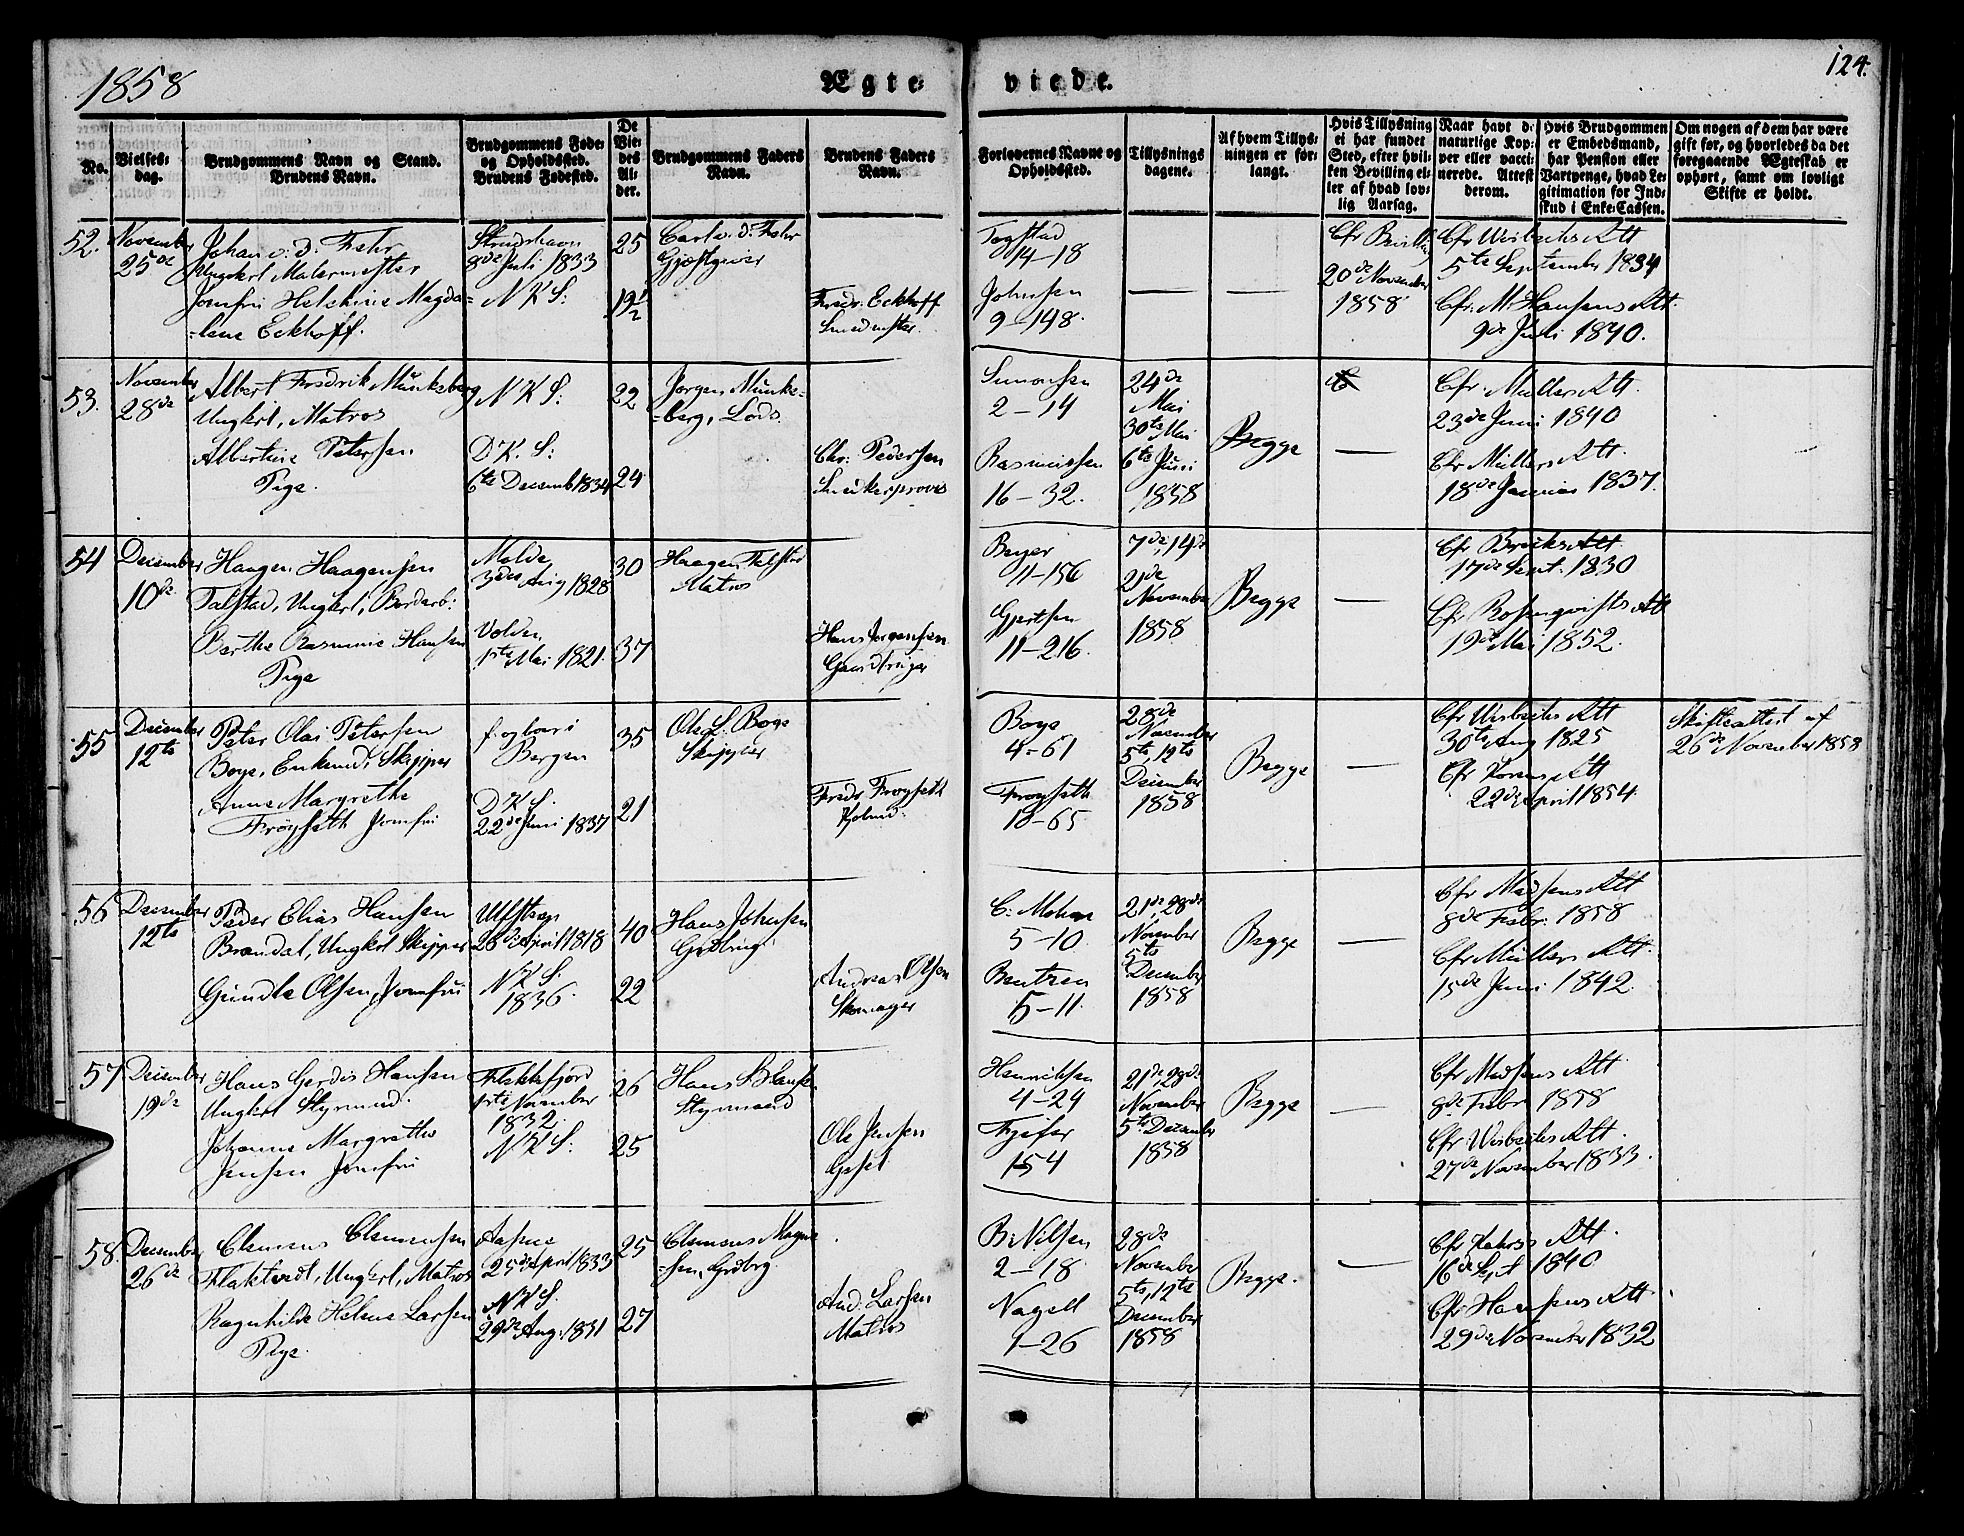 1858
Ægte-
viede.
124.
No.
Vielses-
dag.
Brudgommens Navn og Stand.
Brudens Navn.
Brudgommens Føde-
og Opholdssted.
Brudens Fødested.
De
Vie-
des
Al-
der.
Brudgommens Faders
Navn.
Brudens Faders
Navn.
Forlovernes Navne og
Opholdssted.
Tillysnings
dagene.
Af hvem Tillys-
ningen er for-
langt.
Hvis Tillysning
ei har fundet
Sted, efter hvil-
ken Bevilling el-
ler af hvad lov-
lig Aarsag.
Naar havt de
naturlige Kop-
per eller vacci-
nerede. Attest
derom.
Hvis Brudgommen
er Embedsmand,
har Pension eller
Vartpenge, hvad Le-
gitimation for Ind-
skud i Enke-Cassen.
Om nogen af dem har være
gift før, og hvorledes da det
foregaaende Ægteskab er
ophørt, samt om lovligt
Skifte er holdt.
52.
November
25de
Johan v. d. Fehr
Ungkrl Malermester
Jomfru Helchine Magda-
-lene Eckhoff.
8de Juli 1833
N K S:
25
19½
Carl v. d. Fehr
Gjæstgiver
Fredr: Eckhoff
Smedmester
Togstad
14-18
Johnsen
9-148.
Cfr Bevillg
20de November
1858
Cfr Wisbechs Att
5te September 1834
Cfr: M. Hansens Att.
9de Juli 1840.
53.
November
28de
Albert Fredrik Munkeberg
Ungkrl, Matros
Albertine Petersen
Pige.
N K S:
D. K. S:
6te Decemb 1834
22
24
Jørgen Munke-
-berg, Lods.
Chr: Pedersen
Simonsen
2-14
Rasmussen
16-32.
24de
Mai
30te Mai
6te Juni
1858
Begge
Cfr. Müllers Att.
23de Juni 1840
Cfr Müllers Att.
18de Januar 1837.
54
December
10de
Haagen Haagensen
Talstad, Ungkrl, Bordarb:
Berthe Rasmine Hansen
Pige
Molde
3die Aug 1828
Volden
1ste Mai 1821.
30
37
Haagen Talstad
Matros
Hans Jørgensen
Beyer
11-156
Gjertsen
11-216.
7de, 14de
21de
November
1858
Begge
Cfr Brechs Att.
17de Sept. 1830
Cfr Rosenqvists Att
19de Mai 1852.
55
December
12te
Peter Olai Petersen
Boye, Enkemd, Skipper
Anne Margrethe
Frøyseth Jomfru
f. og boer i
Bergen
D K S.
22de Juni 1837
35
21
Ole L. Boye
Skipper
Fredr Frøyseth
Boye
4-61
Frøyseth
10-65
28de
November
5te, 12te
December
1858
Begge
Cfr Wisbechs Att
30te Aug 1825
22de April 1854.
Skifteattest af
26de November 1858
56
December
12te
Peder Elias Hansen
Brandal, Ungkrl Skipper
Gundla Olsen, Jomfru
Ulfsteen
26de April 1818
N K S.
1836.
40
22
Hans Johnsen
Grdbrug.
Andreas Olsen
Skomager
C: Mohn
5-10.
Bentzen
5-11.
21de, 28de
November
5te
December
1858
Begge
Cfr Madsens Att
8de Febr: 1858
Cfr Müllers Att.
15de Juni 1842.
57
December
19de
Hans Gerdis Hansen
Ungkrl Styrmand.
Johanne Margrethe
Jensen Jomfru
Flekkefjord
1ste November
1832.
N K S:
26
25
Styrmand
Ole Jensen
Henrichsen
4-24
154
21de, 28de
November
5te December
1858
Begge
Cfr Madsens Att
8de Febr 1858
Cfr: Wisbechs Att.
27de November 1833.
58.
December
26de
Clemens Clemensen
Flaktvedt, Ungkrl, Matros
Ragnhilde Helene Larsen
Pige.
25de April 1833
N K S.
29de Aug: 1831
25
27
Clemens Magne-
-sen, Grdbrg.
And: Larsen
Matros
B: Nilsen
2-18
Nagell
1-26
28de
November
5te, 12te
December
1858
Begge.
16de Sept 1840
Cfr Hansens Att.
29de November 1832